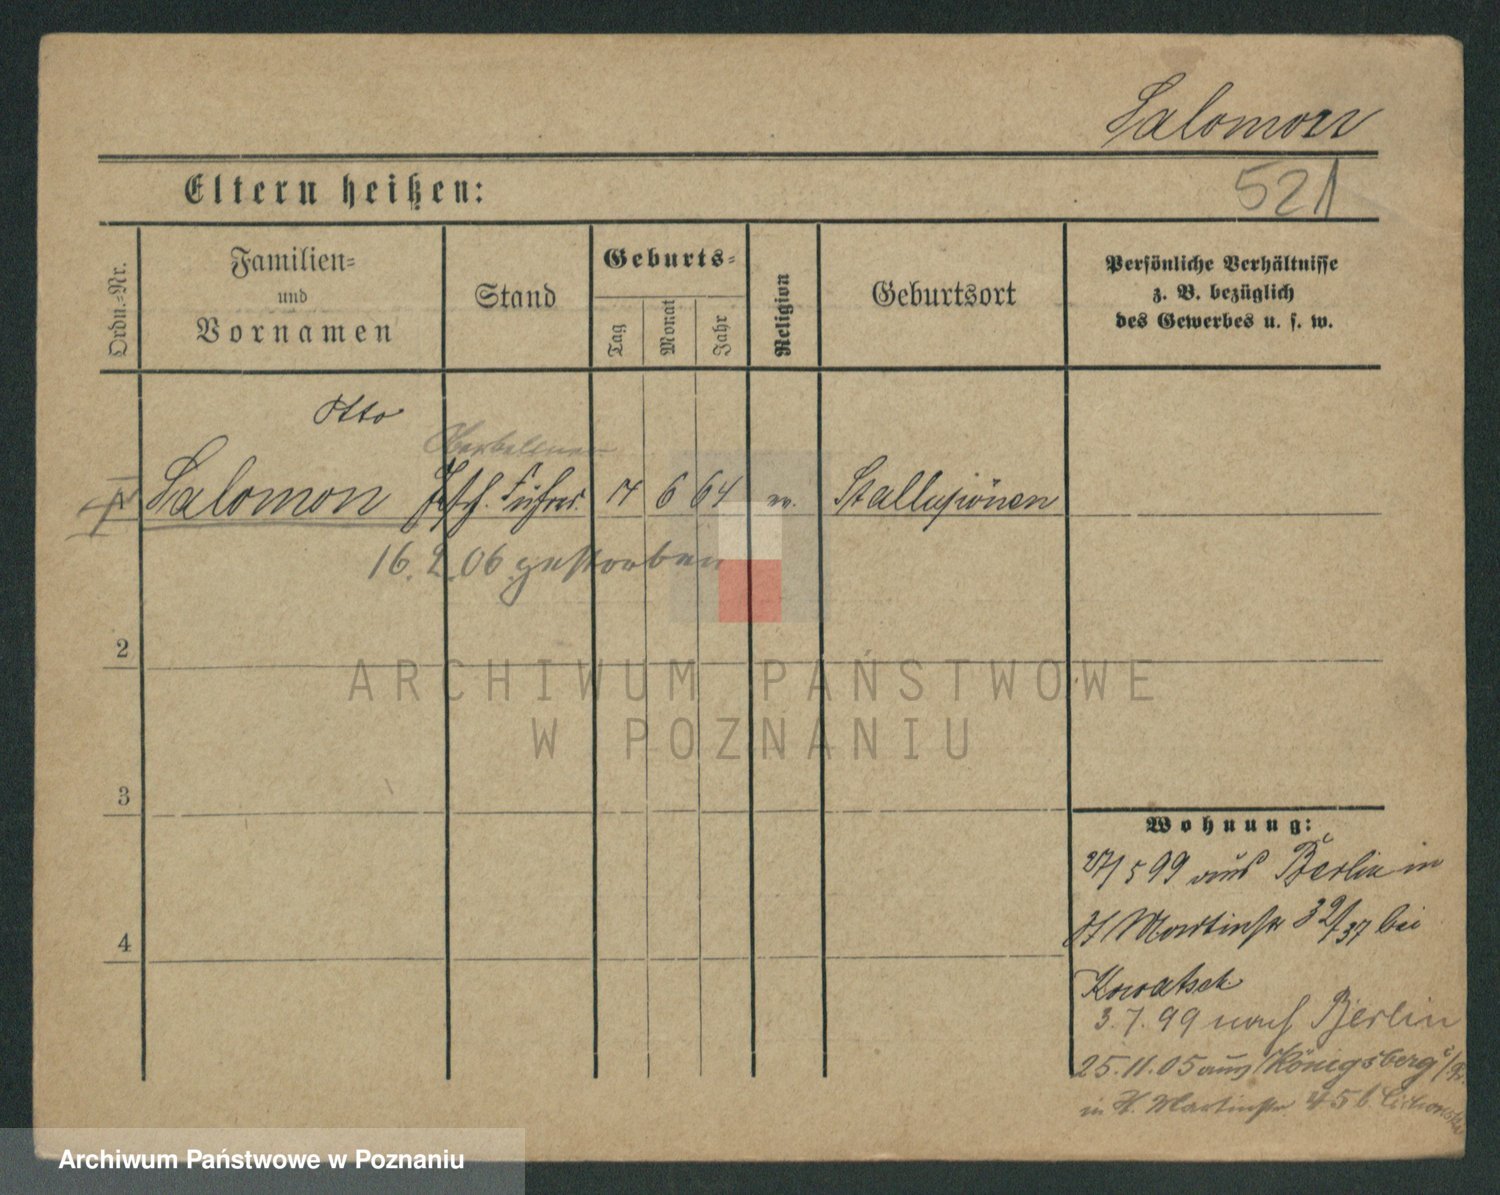 Salomon
Eltern heißen:
521
Ordn.-Nr.
Familien-
und
Vornamen
Stand
Geburts-
Tag
Monat
Jahr
Religion
Geburtsort
Persönliche Verhältnisse
z. B. bezüglich
des Gewerbes u. s. w.
Otto
Salomon
6 64
Stallupönen
16.2.06 gestorben
2
3
4
ARCHIWUM PAŃSTWOWE
W POZNANIU
Wohnung:
5 99 aus Berlin in
St Martinstr 32/37 bei
Kowatsch
3.7.99 nach Berlin
25.11.05 aus Königsberg i/Pr.
in St. Martinstr 45 b.
Archiwum Państwowe w Poznaniu